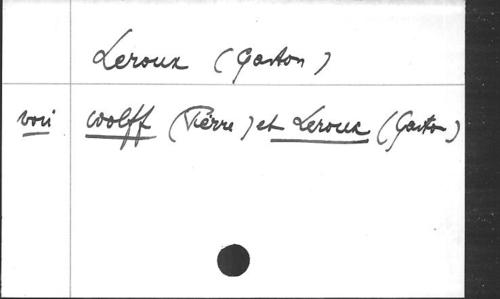 Leroux (Gaston)
voir Wolff (Pierre) et Leroux (Gaston)